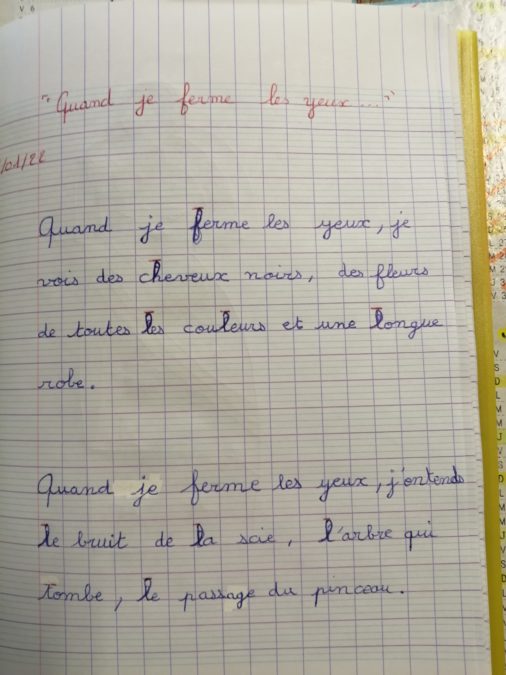 "Quand je ferme les yeux..."
/01/22
Quand je ferme les yeux, je
vois des cheveux noirs, des fleurs
de toutes les couleurs et une longue
robe.
Quand je ferme les yeux, j'entends
le bruit de la scie, l'arbre qui
tombe, le passage du pinceau.